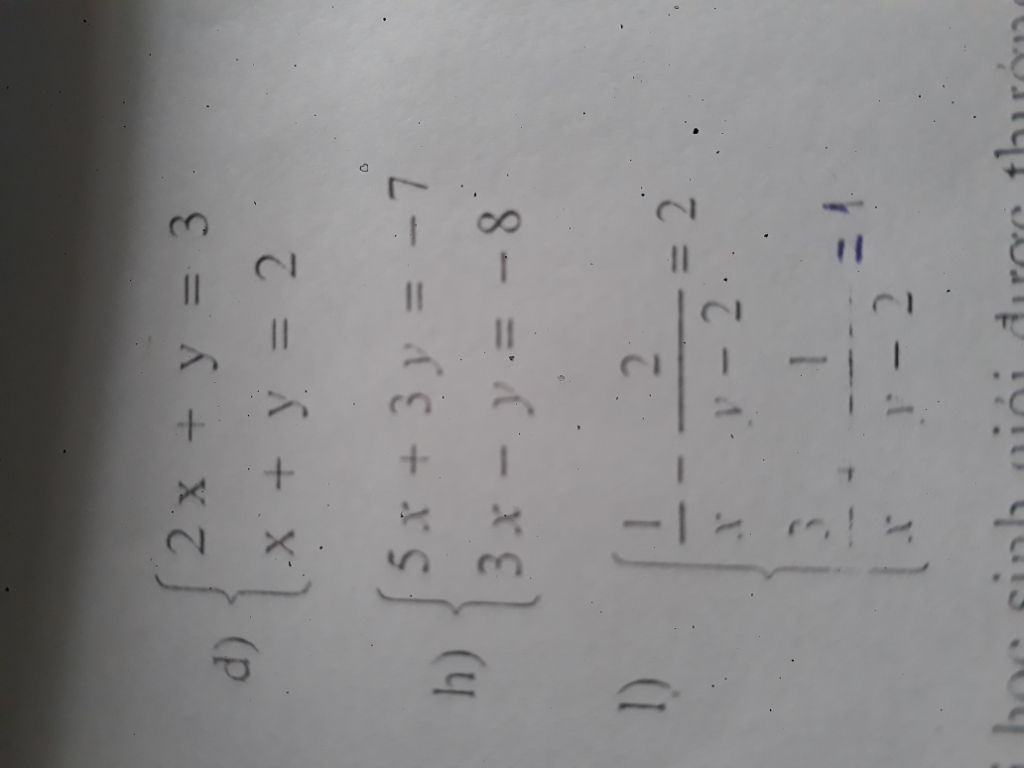 d) { 2x + y = 3
x + y = 2
h) { 5x + 3y = -7
3x - y = -8
l) { 1/x - 2/(y - 2) = 2
3/x + 1/(y - 2) = 1
học sinh giỏi được